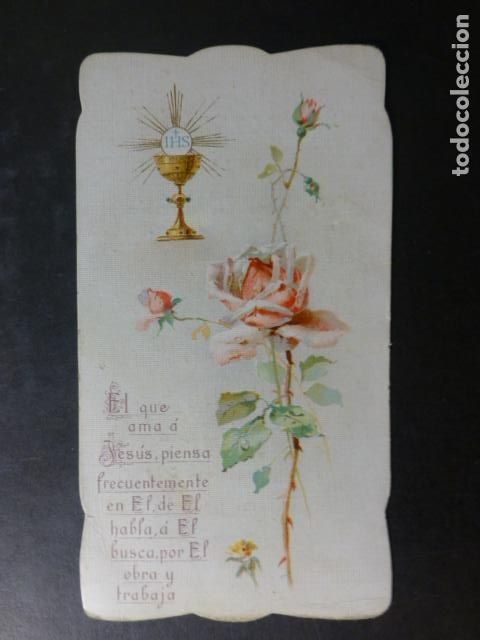 IHS
El que
ama á
Jesús, piensa
frecuentemente
en El, de El
habla, á El
busca, por El
obra y
trabaja
todocoleccion